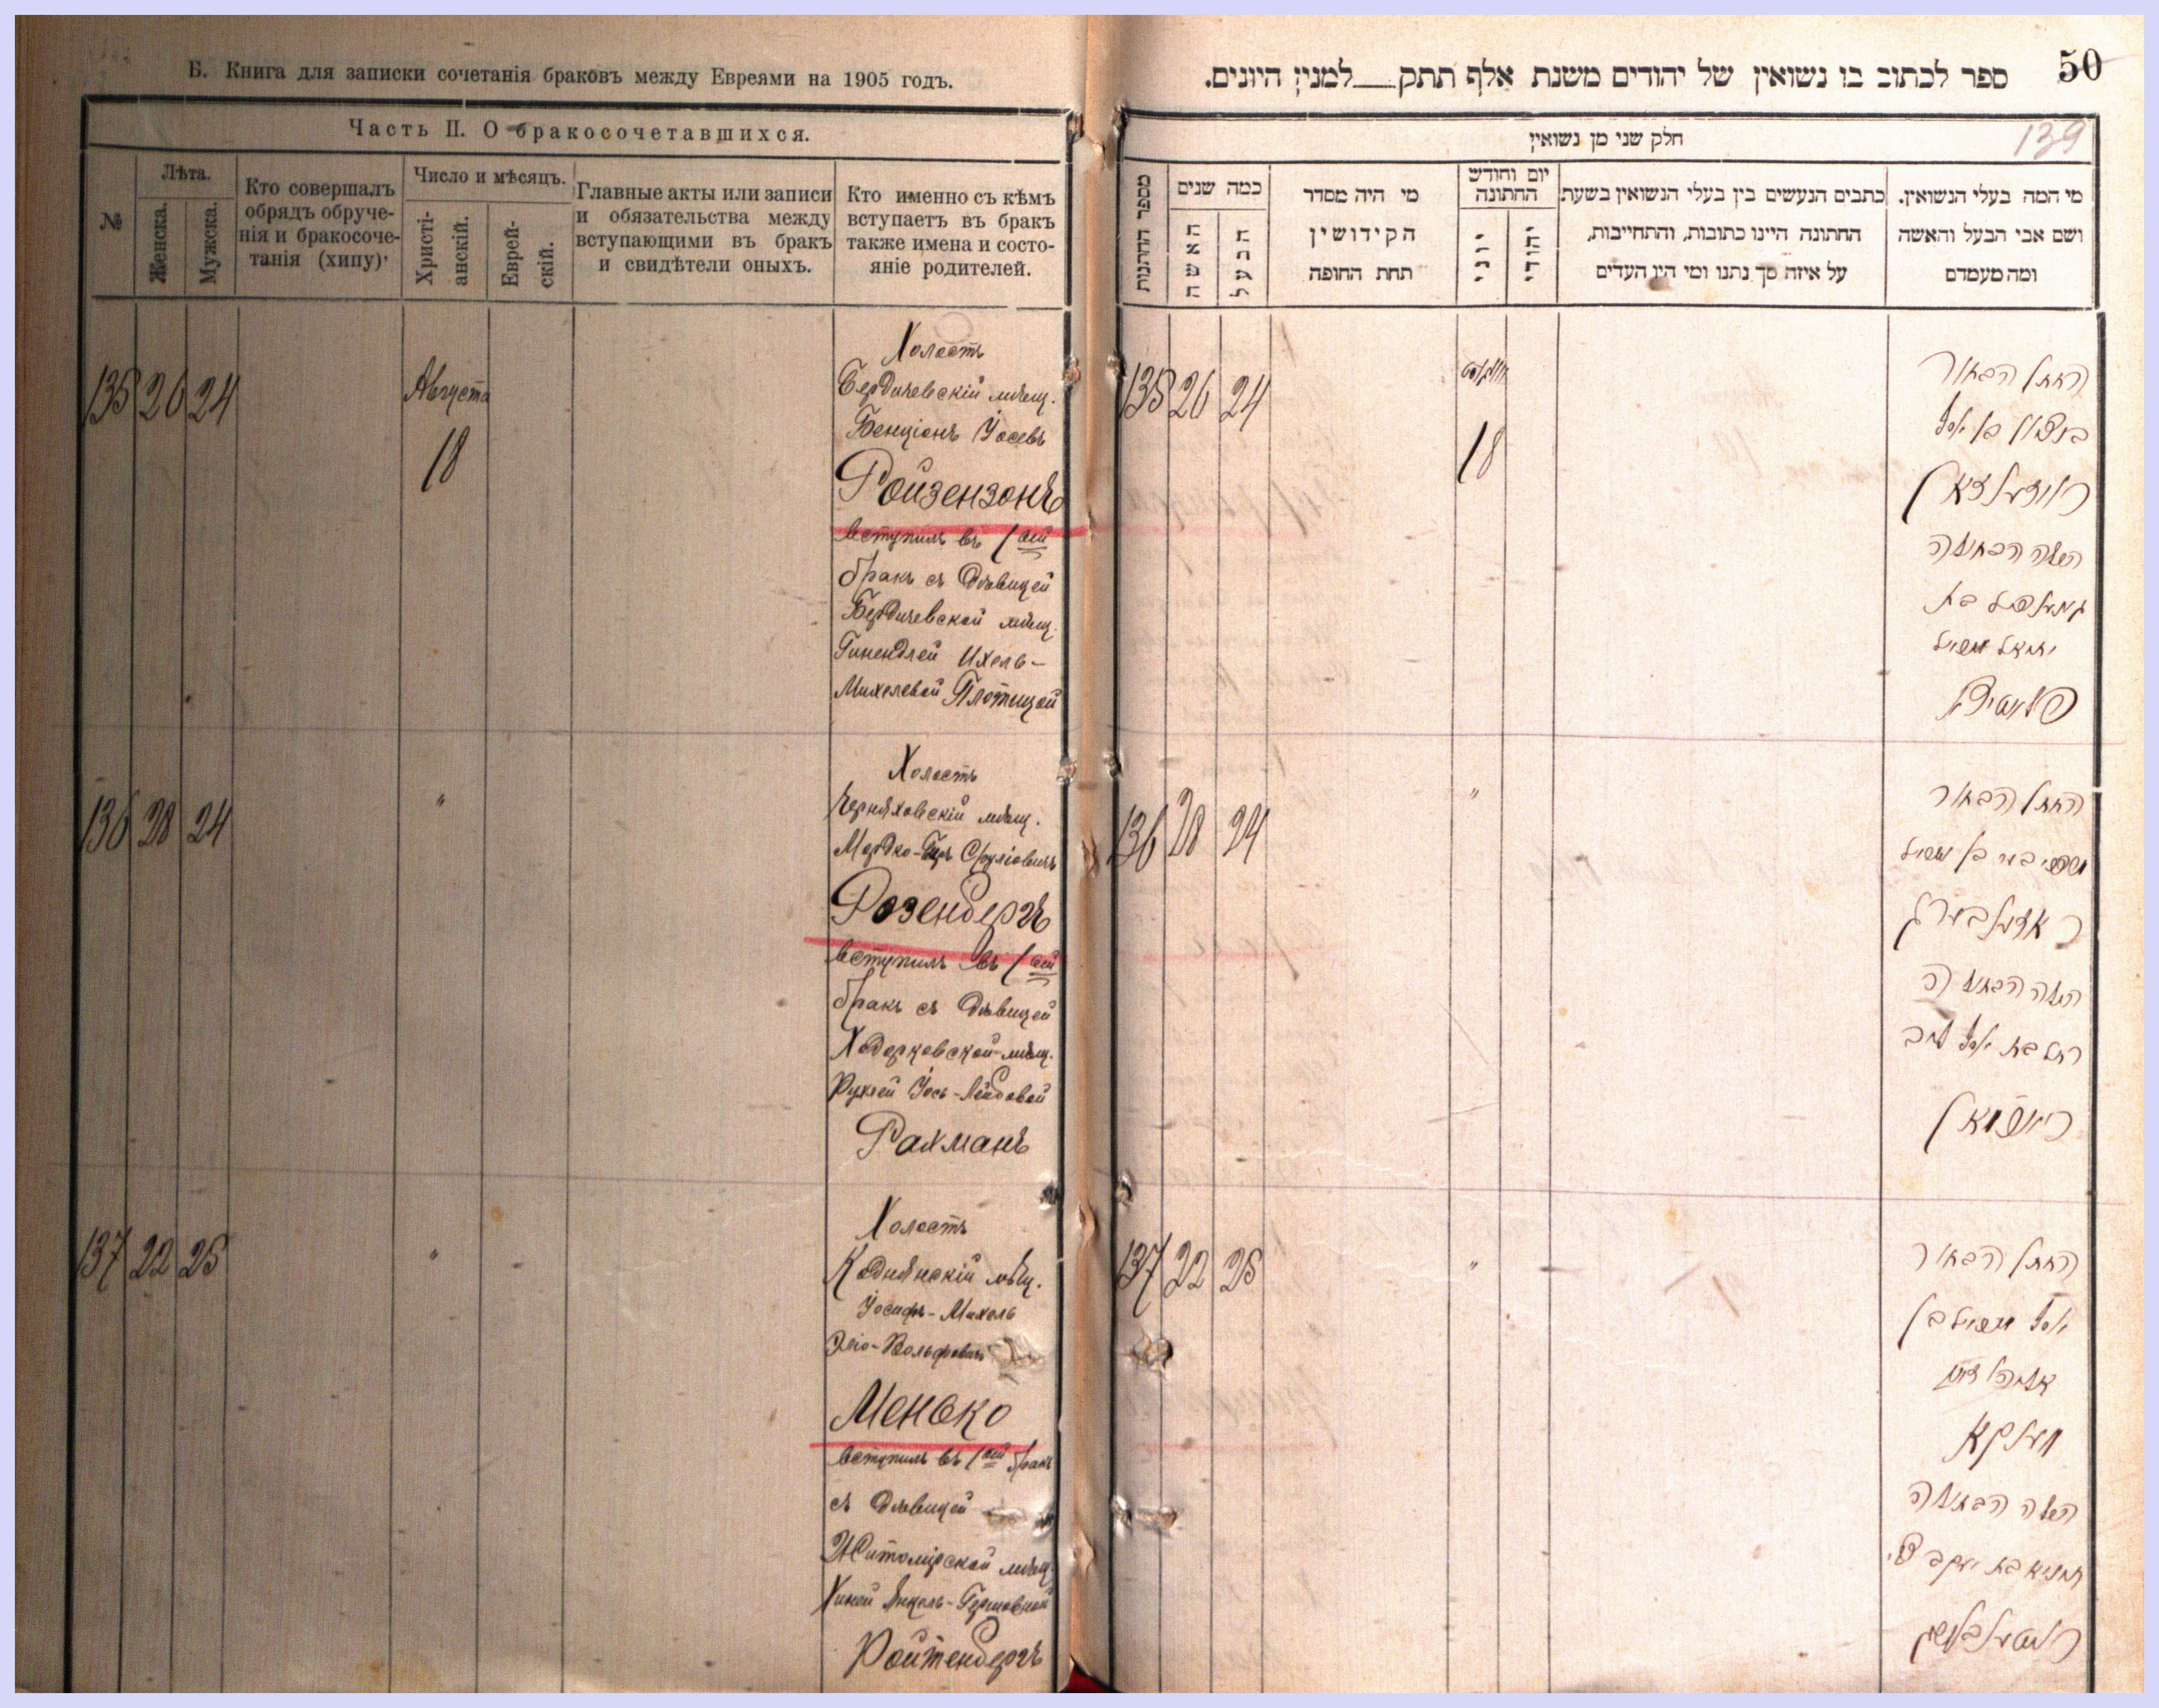 Б. Книга для записки сочетанія браковъ между Евреями на 1905 годъ.
Часть II. О бракосочетавшихся.
№
Лѣта.
Женска.
Мужска.
Кто совершалъ
обрядъ обруче-
нія и бракосоче-
танія (хипу)
Число и мѣсяцъ.
Христі-
анскій.
Еврей-
скій.
Главные акты или записи
и обязательства между
вступающими въ бракъ
и свидѣтели оныхъ.
Кто именно съ кѣмъ
вступаетъ въ бракъ
также имена и состо-
яніе родителей.
135 26 24
Августа
18
Холостъ
Бердичевскій мѣщ.
Бенціонъ Іосевъ
Ройзензонъ
вступилъ въ 1ый
бракъ съ дѣвицей
Бердичевской мѣщ.
Гинендлей Ихель-
Михелевой Плотицой
136 28 24
"
Холостъ
Черняховскій мѣщ.
Мордко-Беръ Сруліовичъ
Розенбергъ
вступилъ въ 1ый
бракъ съ дѣвицей
Ходорковской мѣщ.
Рухлей Іось-Лейбовой
Рахманъ
137 22 25
"
Холостъ
Коднянскій мѣщ.
Іосифъ-Михель
Эліо-Вольфовичъ
Менько
вступилъ въ 1ый бракъ
съ дѣвицей
Житомірской мѣщ.
Хиней Янкель-Гершовной
Ройтенбергъ
50
ספר לכתוב בו נשואין של יהודים משנת אלף תתק__למנין היונים.
139
חלק שני מן נשואין
מספר החתנות
כמה שנים
האשה
הבעל
מי היה מסדר
הקידושין
תחת החופה
יום וחודש
החתונה
יוני
יהודי
כתבים הנעשים בין בעלי הנשואין בשעת
החתונה היינו כתובות, והתחייבות,
על איזה סך נתנו ומי היו העדים
מי המה בעלי הנשואין.
ושם אבי הבעל והאשה
ומה מעמדם
135 26 24
אויגוסט
18
החתן הבחור
בנציון בן יוסף
רויזענזאן
הכלה הבתולה
בת
יחיאל מיכיל
פלאטיצע
136 28 24
"
החתן הבחור
ראזענבערג
הכלה הבתולה
רחל בת יוסף ליב
137 22 25
"
החתן הבחור
יוסף מיכיל בן
מענקא
הכלה הבתולה
בת יעקב צבי
רויטענבערג